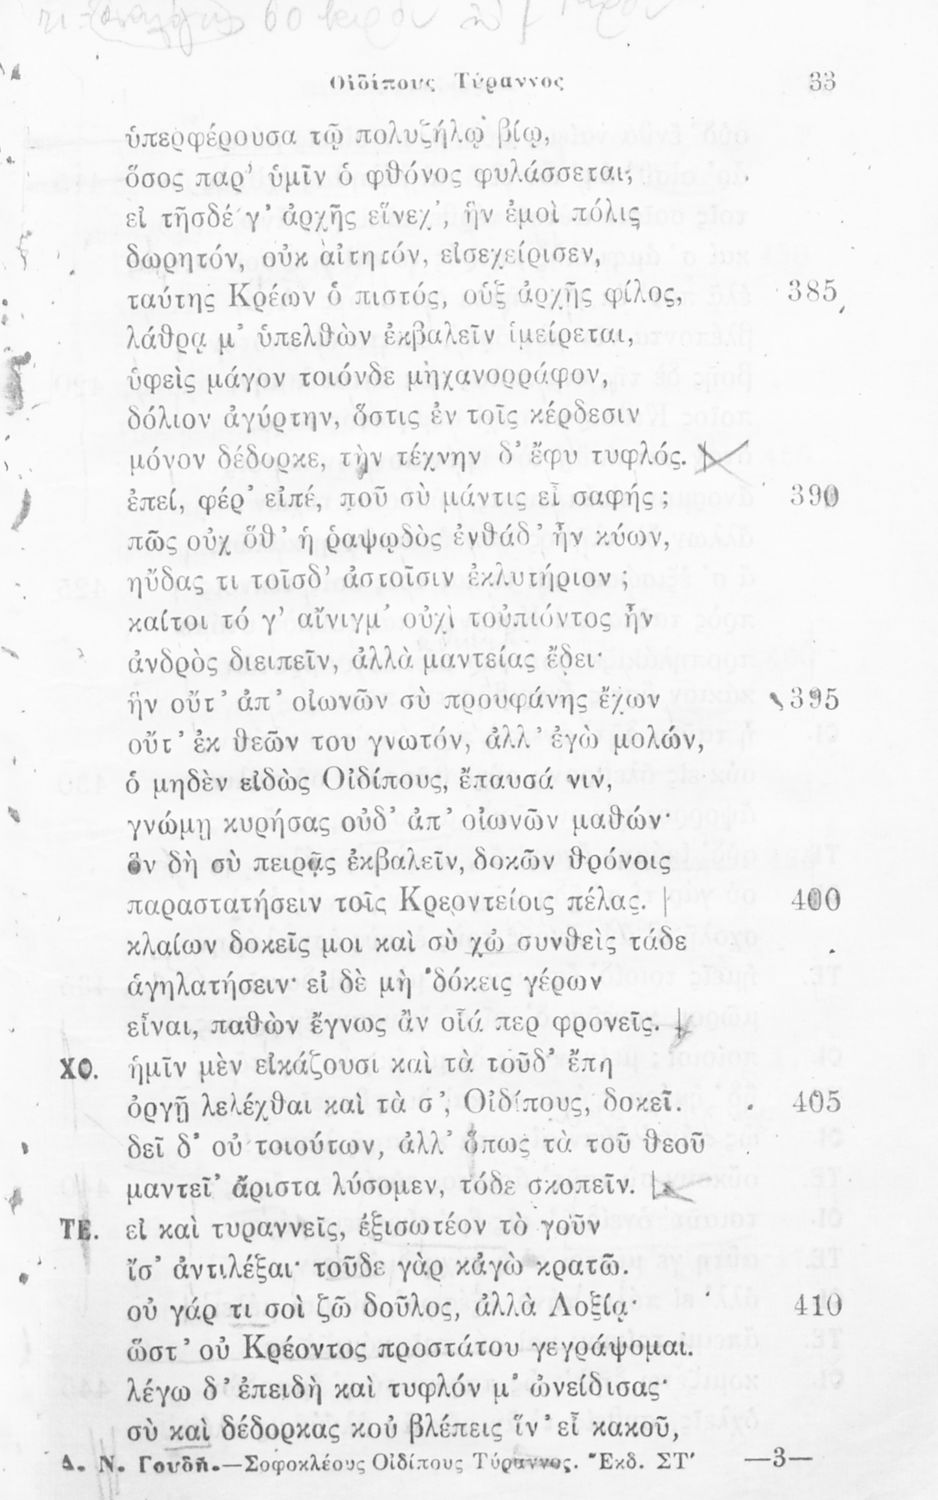 Οἰδίπους Τύραννος 33
ὑπερφέρουσα τῷ πολυζήλῳ βίῳ,
ὅσος παρ' ὑμῖν ὁ φθόνος φυλάσσεται,
εἰ τῆσδέ γ' ἀρχῆς εἵνεχ', ἣν ἐμοὶ πόλις
δωρητόν, οὐκ αἰτητόν, εἰσεχείρισεν,
ταύτης Κρέων ὁ πιστός, οὑξ ἀρχῆς φίλος, 385
λάθρᾳ μ' ὑπελθὼν ἐκβαλεῖν ἱμείρεται,
ὑφεὶς μάγον τοιόνδε μηχανορράφον,
δόλιον ἀγύρτην, ὅστις ἐν τοῖς κέρδεσιν
μόνον δέδορκε, τὴν τέχνην δ' ἔφυ τυφλός.
ἐπεί, φέρ' εἰπέ, ποῦ σὺ μάντις εἶ σαφής ; 390
πῶς οὐχ ὅθ' ἡ ῥαψῳδὸς ἐνθάδ' ἦν κύων,
ηὔδας τι τοῖσδ' ἀστοῖσιν ἐκλυτήριον ;
καίτοι τό γ' αἴνιγμ' οὐχὶ τοὐπιόντος ἦν
ἀνδρὸς διειπεῖν, ἀλλὰ μαντείας ἔδει·
ἣν οὔτ' ἀπ' οἰωνῶν σὺ προυφάνης ἔχων 395
οὔτ' ἐκ θεῶν του γνωτόν, ἀλλ' ἐγὼ μολών,
ὁ μηδὲν εἰδὼς Οἰδίπους, ἔπαυσά νιν,
γνώμῃ κυρήσας οὐδ' ἀπ' οἰωνῶν μαθών·
ὃν δὴ σὺ πειρᾷς ἐκβαλεῖν, δοκῶν θρόνοις
παραστατήσειν τοῖς Κρεοντείοις πέλας. 400
κλαίων δοκεῖς μοι καὶ σὺ χὠ συνθεὶς τάδε
ἁγηλατήσειν· εἰ δὲ μὴ 'δόκεις γέρων
εἶναι, παθὼν ἔγνως ἂν οἷά περ φρονεῖς.
ΧΟ. ἡμῖν μὲν εἰκάζουσι καὶ τὰ τοῦδ' ἔπη
ὀργῇ λελέχθαι καὶ τὰ σ', Οἰδίπους, δοκεῖ. 405
δεῖ δ' οὐ τοιούτων, ἀλλ' ὅπως τὰ τοῦ θεοῦ
μαντεῖ' ἄριστα λύσομεν, τόδε σκοπεῖν.
ΤΕ. εἰ καὶ τυραννεῖς, ἐξισωτέον τὸ γοῦν
ἴσ' ἀντιλέξαι· τοῦδε γὰρ κἀγὼ κρατῶ.
οὐ γάρ τι σοὶ ζῶ δοῦλος, ἀλλὰ Λοξίᾳ· 410
ὥστ' οὐ Κρέοντος προστάτου γεγράψομαι.
λέγω δ' ἐπειδὴ καὶ τυφλόν μ' ὠνείδισας·
σὺ καὶ δέδορκας κοὐ βλέπεις ἵν' εἶ κακοῦ,
Δ. Ν. Γουδῆ.—Σοφοκλέους Οἰδίπους Τύραννος. Ἔκδ. ΣΤ' —3—